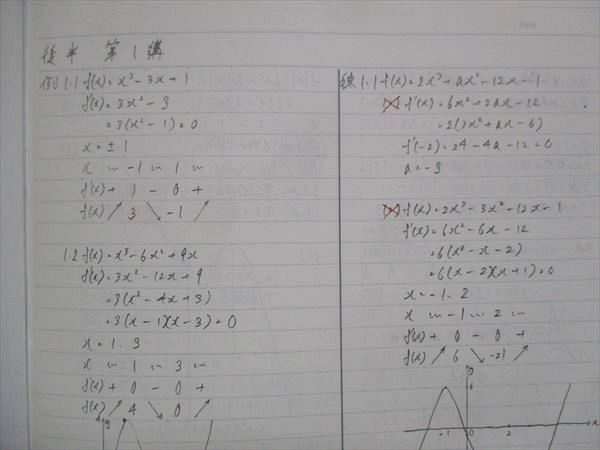 後半 第1講
例1.1 f(x)=x³-3x+1
f'(x)=3x²-3
=3(x²-1)=0
x=±1
x … -1 … 1 …
f'(x) + 0 - 0 +
f(x) ↗ 3 ↘ -1 ↗
1.2 f(x)=x³-6x²+9x
f'(x)=3x²-12x+9
=3(x²-4x+3)
=3(x-1)(x-3)=0
x=1.3
x … 1 … 3 …
f'(x) + 0 - 0 +
f(x) ↗ 4 ↘ 0 ↗
4 y
練1.1 f(x)=2x³+ax²-12x-1
f'(x)=6x²+2ax-12
=2(3x²+ax-6)
f'(-2)=24-4a-12=0
a=-3
f(x)=2x³-3x²-12x-1
f'(x)=6x²-6x-12
=6(x²-x-2)
=6(x-2)(x+1)=0
x=-1.2
x … -1 … 2 …
f'(x) + 0 - 0 +
f(x) ↗ 6 ↘ -21 ↗
6
-1 0 2 x